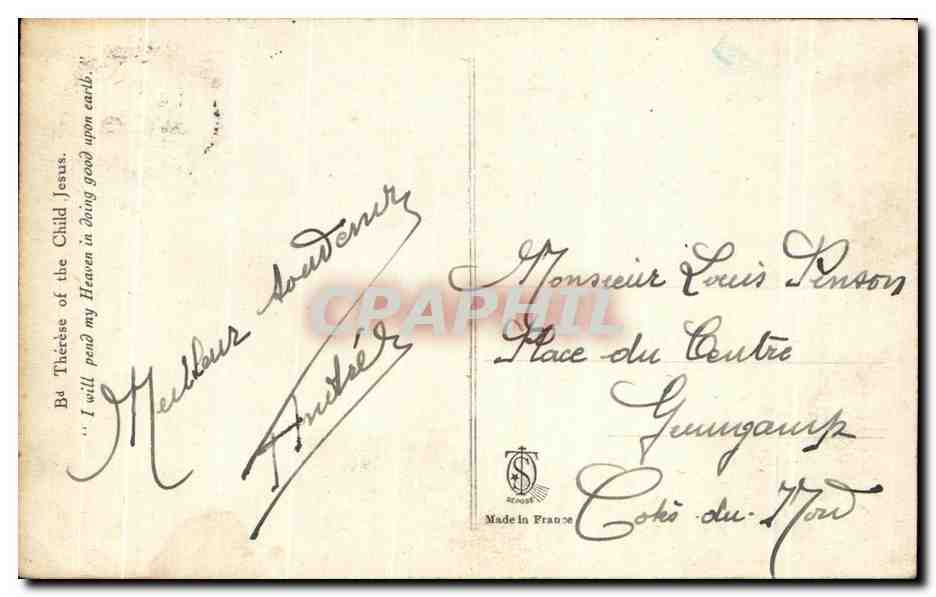 Bd Thérèse of the Child Jesus.
"I will pend my Heaven in doing good upon earth."
Meilleur souvenir
André
Monsieur Louis Pinson
Place du Centre
Guingamp
Cotes-du-Nord
DEPOSE
Made in France
CPAPHIL